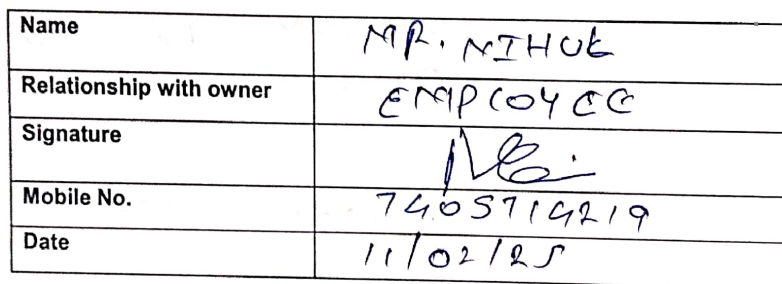 Name MR. NIHUL
Relationship with owner EMPLOYEE
Signature
Mobile No. 7405714219
Date 11/02/25